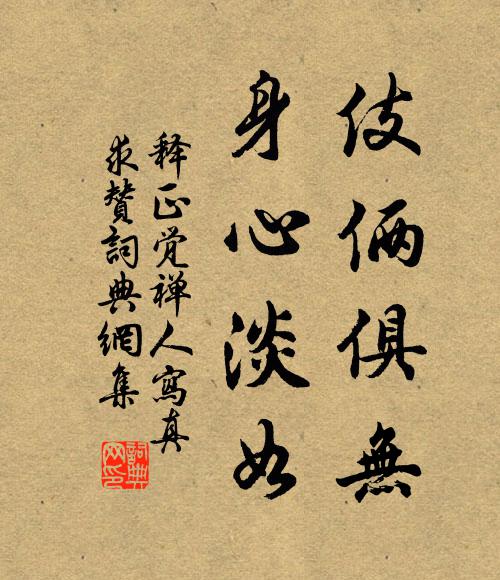 伎俩俱無
身心淡如
释正觉禅人寫真
求赞詞典網集
詞典网印